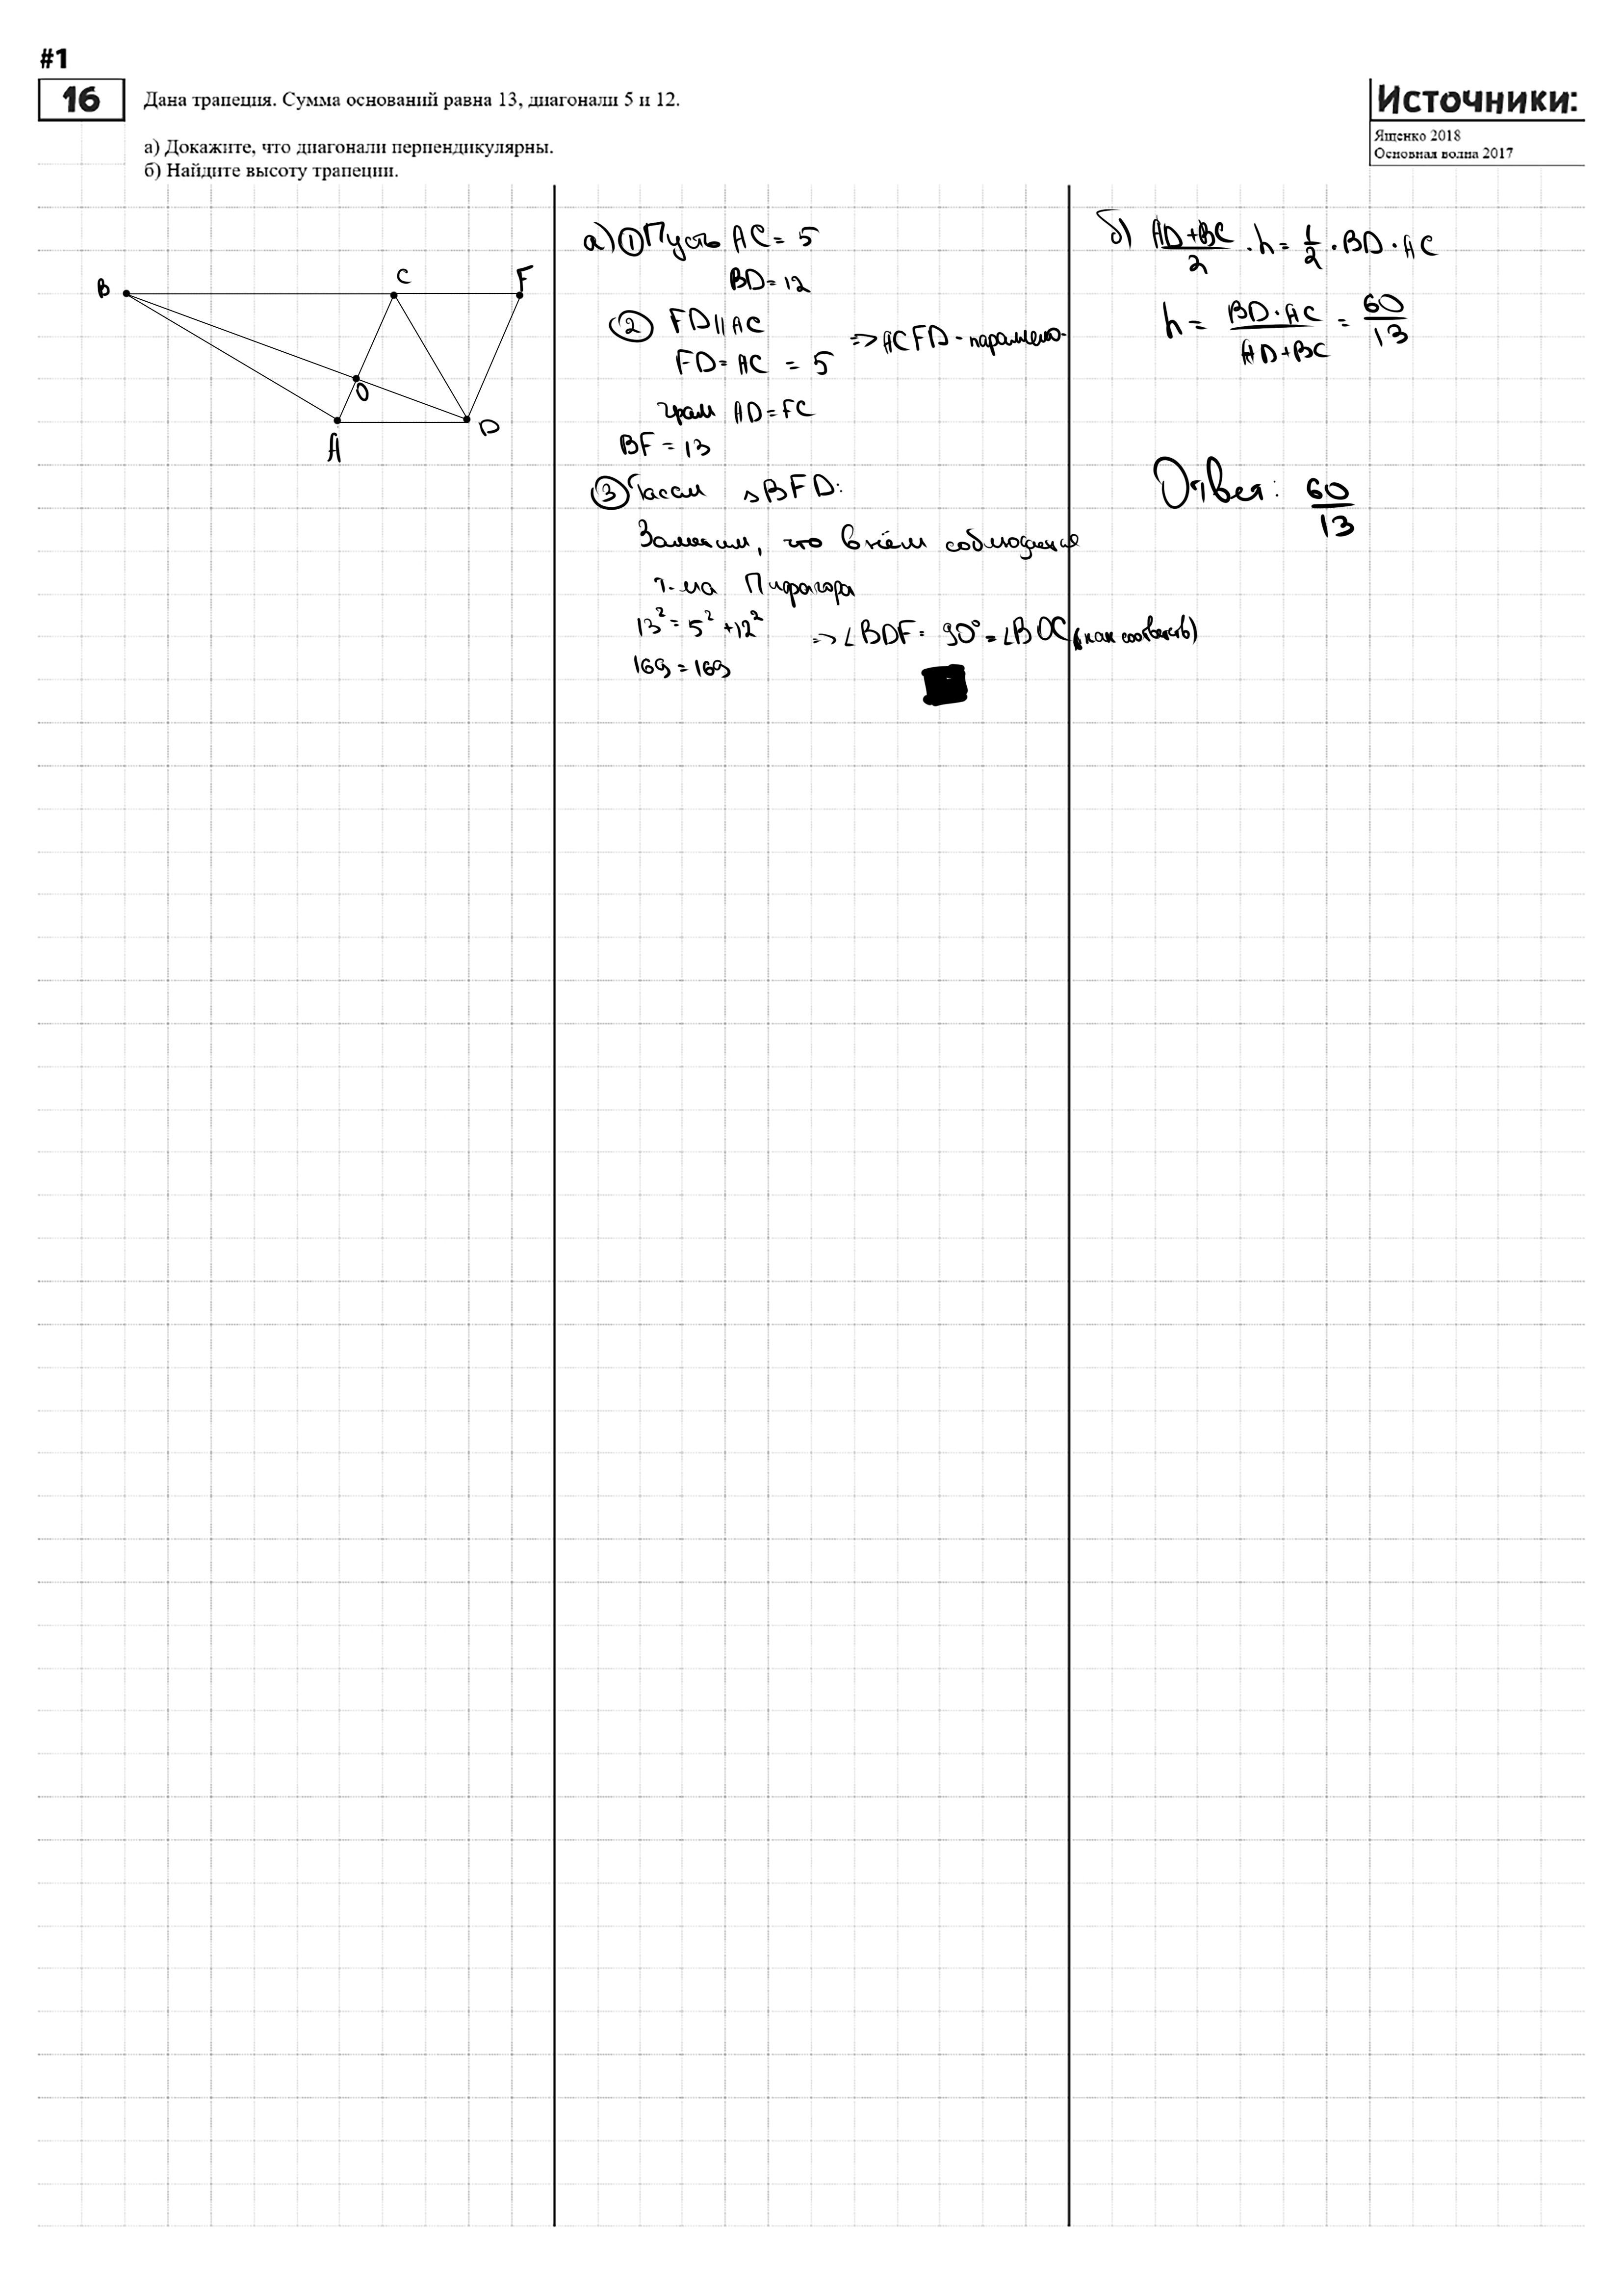 #1
16
Дана трапеция. Сумма оснований равна 13, диагонали 5 и 12.
а) Докажите, что диагонали перпендикулярны.
б) Найдите высоту трапеции.
Источники:
Ященко 2018
Основная волна 2017
B
C
F
O
A
D
а) ① Пусть AC = 5
BD = 12
② FD || AC
FD = AC = 5
=> ACFD - параллело-
грам AD = FC
BF = 13
③ △BFD:
Заметим, что в нём соблюдается
т-ма Пифагора
13² = 5² + 12²
169 = 169
=> ∠BDF = 90° = ∠BOC (как соответств)
б) (AD+BC)/2 · h = 1/2 · BD · AC
h = (BD · AC)/(AD+BC) = 60/13
Ответ: 60/13